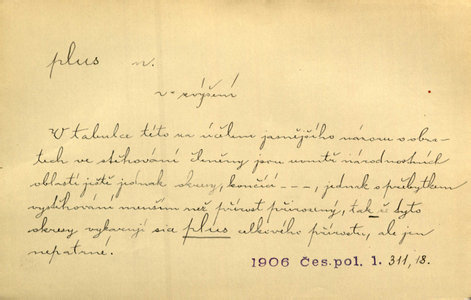 plus n.
v. zvýšení
V tabulce této za účelem jasnějšího názoru o obra-
tech ve stěhování členěny jsou uvnitř národnostních
oblastí jistě jednak okresy, končící - - -, jednak s přebytkem
vystěhování menším než přírost přirozený, tak že tyto
okresy vykazují sice plus celkového přírostu, ale jen
nepatrné.
1906 Čes. pol. 1. 311, 18.